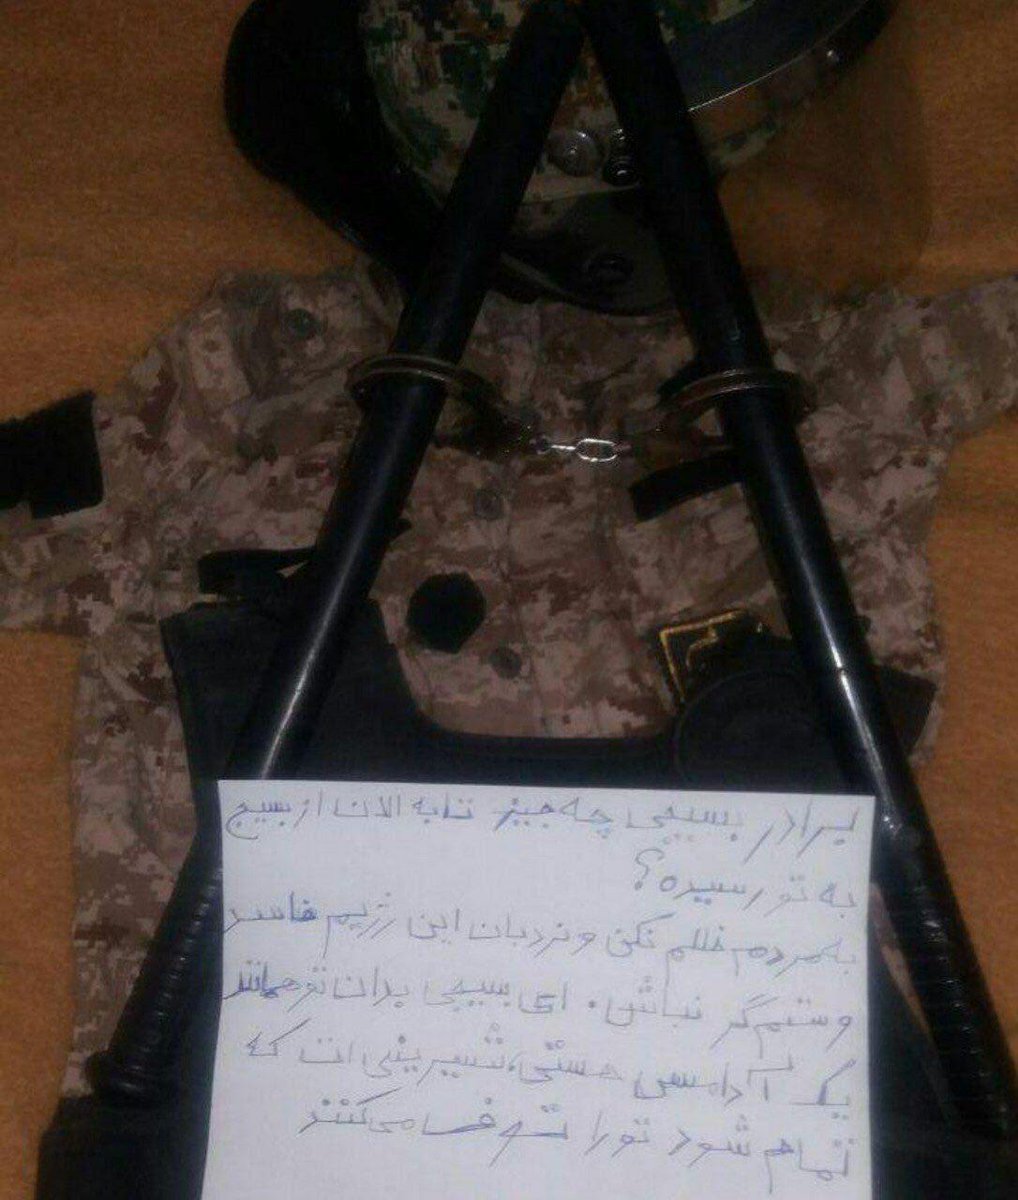 برادر بسیجی چه چیز تا به الان از بسیج
به تو رسیده؟
به مردم ظلم نکن و نردبان این رژیم فاسد
و ستم‌گر نباش. ای بسیجی بدان تو همانند
یک آدامس هستی، شیرینی ات که
تمام شود تو را تف می‌کنند